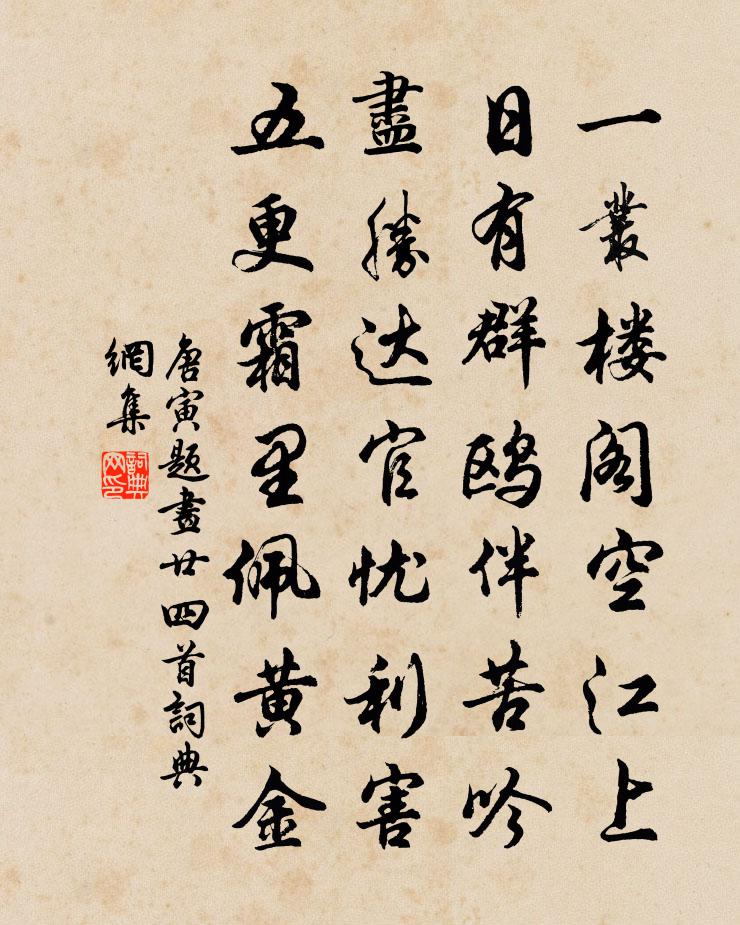 一叢楼阁空江上
日有群鸥伴苦吟
盡勝达官忧利害
五更霜里佩黄金
唐寅题畫廿四首詞典
網集
詞典
网印